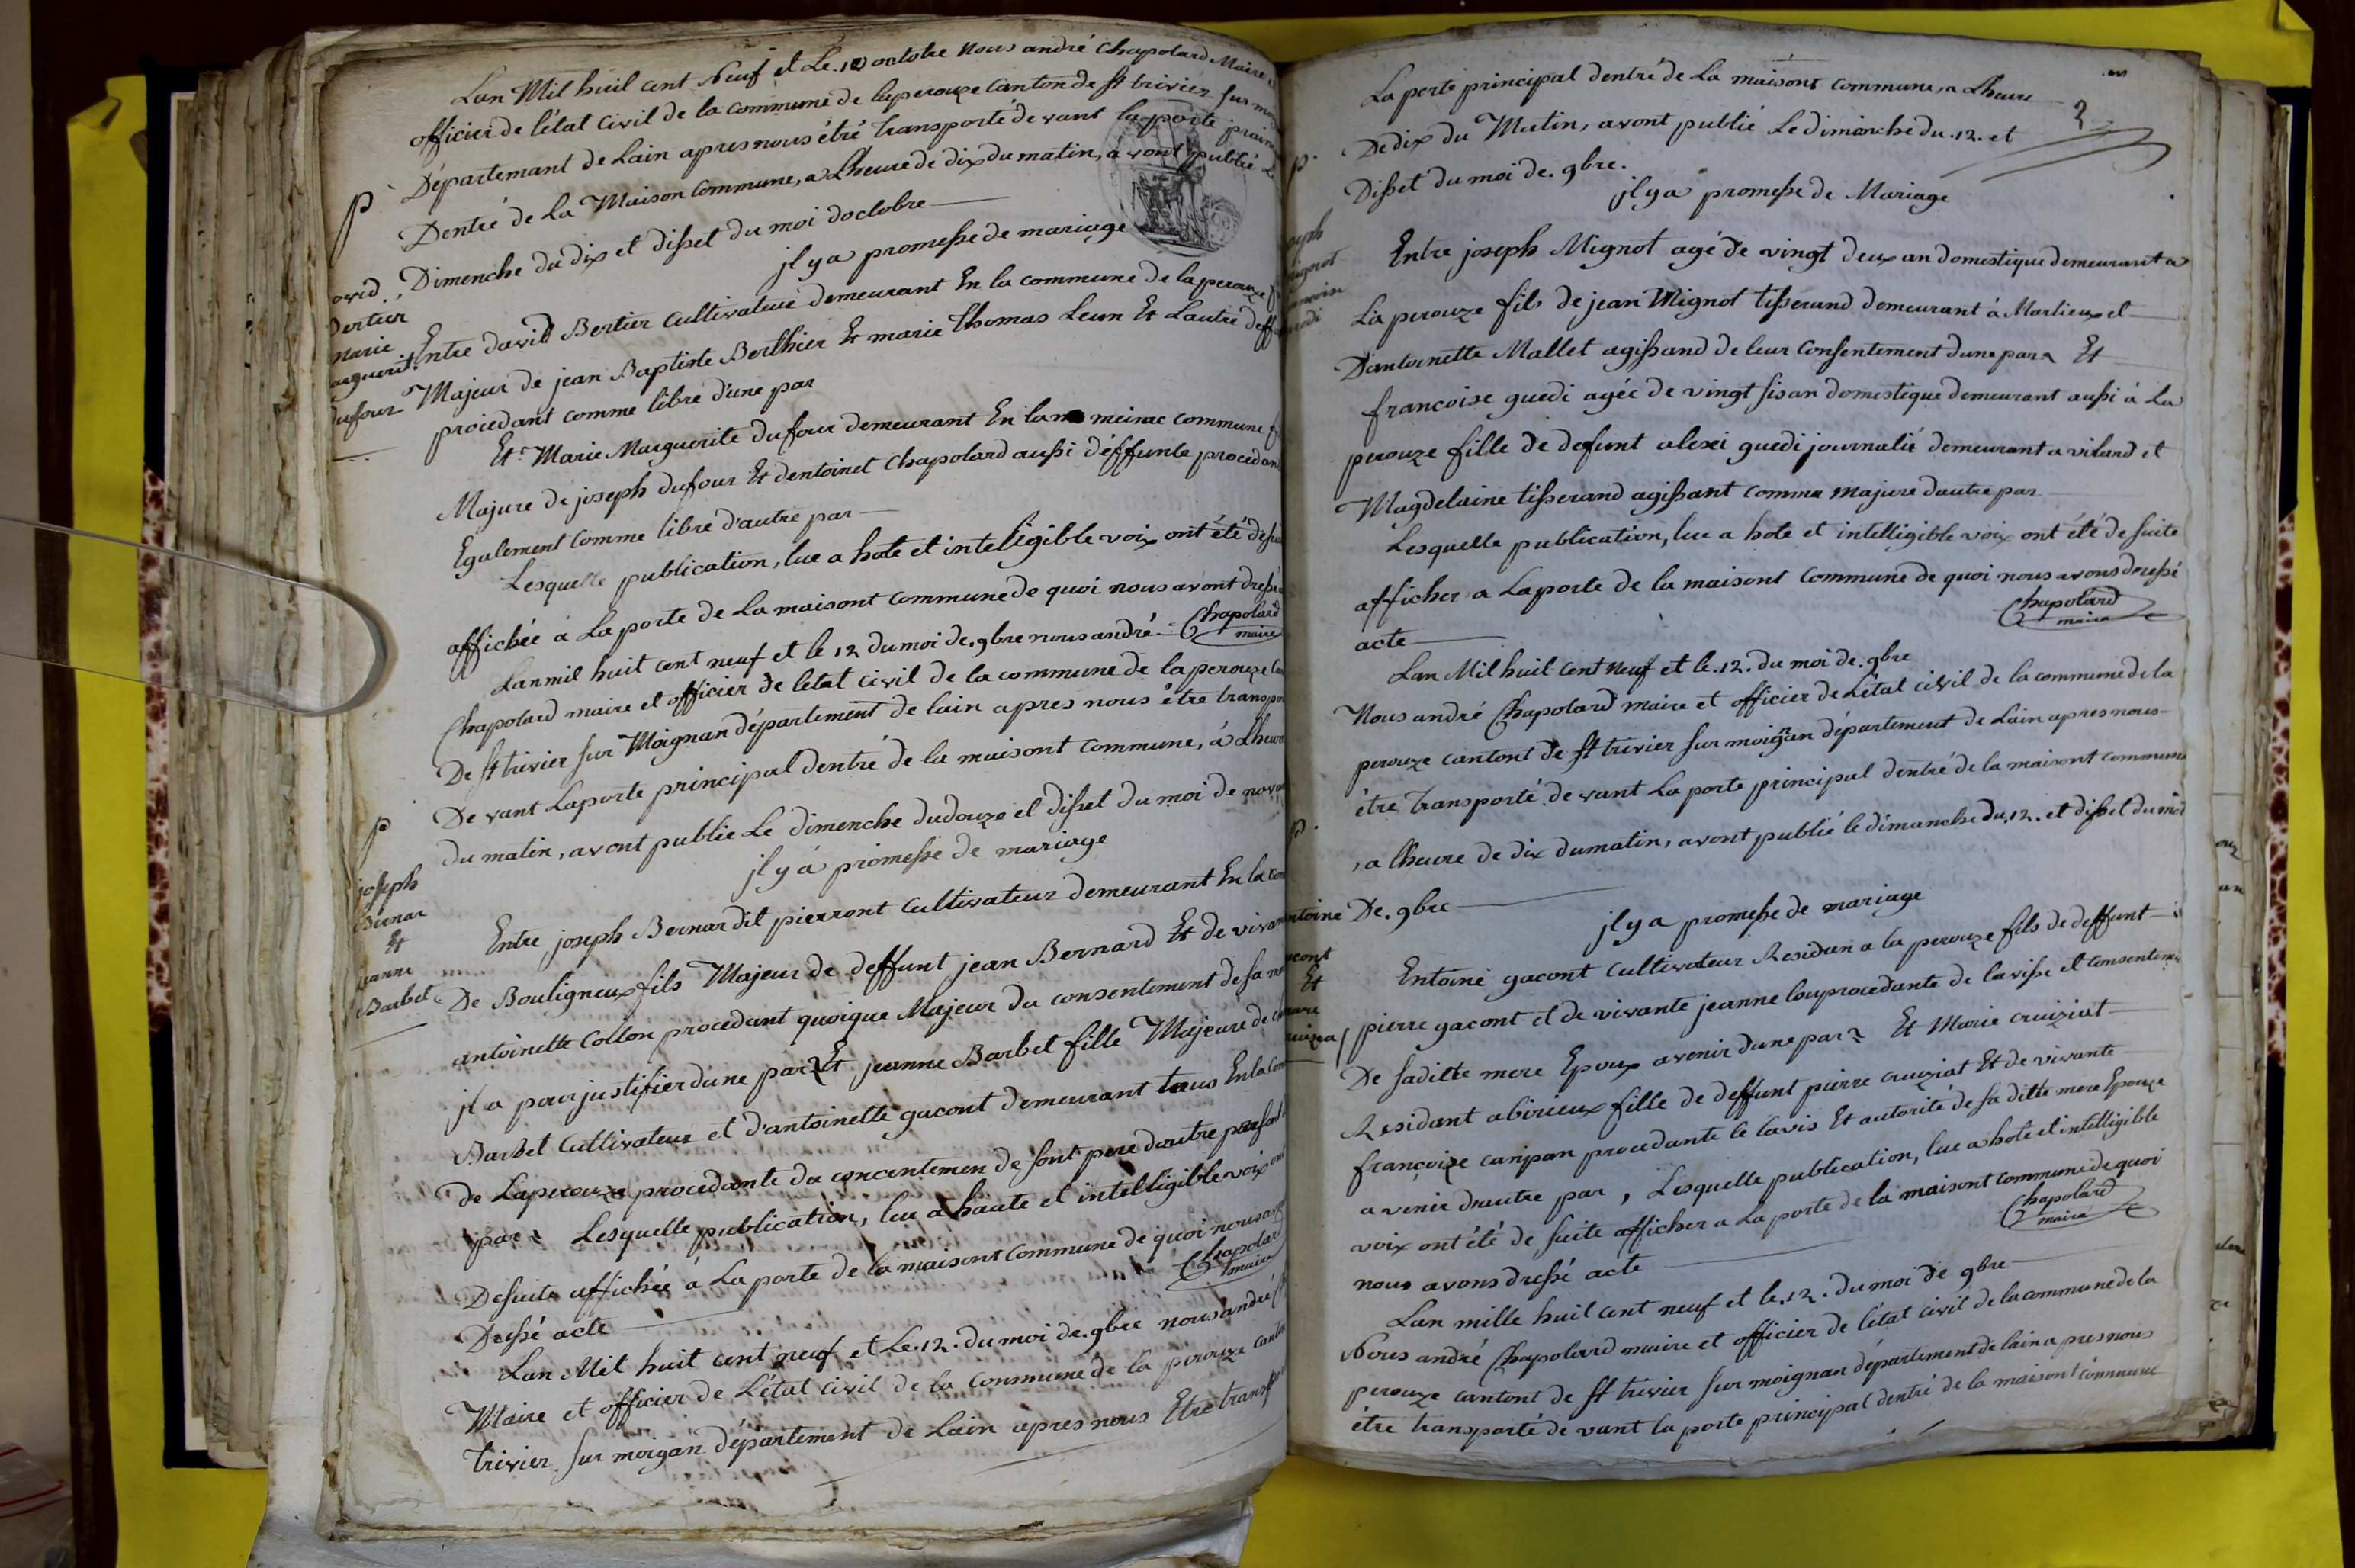 Lan Mil huil cent Neuf et Le. 10 octobre Nous andré Chapolard Maire
officier de létat Civil de la commune de laperouze Canton de st trivier sur
Départemant de Lain apres nous étré transporté de vant la porte
p Dentré de La Maison Commune, a Lheure de dix du matin, a vont publié Le
Dimenche du dix et disset du moi doctobre
jl y a promesse de mariage
David Bertier Marie Marguerite dufour
Entre david Bertier Cultivateur demeurant En la commune de laperouze
Majeur de jean Baptiste Berthier Et marie thomas Leun Et Lautre
procedant comme libre d'une par
Et Marie Marguerite dufour demeurant En la meme commune
Majure de joseph dufour Et dentoinet Chapolard aussi d'éffunte
Egalement Comme libre d'autre par
Lesquelle publication, lue a hote et intelligible voix ont été
affichée a La porte de La maisont commune de quoi nous avont
Chapolard
maire
Lan mil huit cent neuf et le 12 du moi de. 9bre nous andré
Chapolard maire et officier de létat civil de la commune de la perouze
De st trivier sur Moignan département de lain apres nous étre
De vant Laporte principal dentré de la maisont Commune, á Lheure
p du matin, avont publie Le dimenche dudouze et disset du moi de
jl y á promesse de mariage
joseph
Bernar
Et
jeanne
Barbet
Entre joseph Bernar dit pierront Cultivateur demeurant En la
De Bouligneux fils Majeur de deffunt jean Bernard Et de
antoinette Collon procedant quoique Majeur du consentement de sa
jl a pour justifier dune par Et jeanne Barbet fille Majeure de
Barbet Cultivateur et d'antoinette gacont demeurant tous En la
de Laperouze procedante du concentemen de sont pere dautre
par Lesquelle publication, lue a haute et intelligible voix
Desuite affichée á La porte de la maisont commune de quoi
Dressé acte
Chapolard
maire
Lan Mil huit cent neuf et Le. 12. du moi de. 9bre nous andré
Maire et officier de Létat Civil de la Commune de la perouze
trivier sur moigan département de Lain apres nous Etre
2
La porte principal dentré de La maisont commune, a Lheure
p. De dix du Matin, avont publié Le dimanche du. 12. et
Disset du moi de. 9bre.
jl y a promesse de Mariage
Entre joseph Mignot agé de vingt deux an domestique demeurant a
La perouze fils de jean Mignot tisserand demeurant à Marlieux et
D'antoinette Mallet agissand de leur Consentement dune par Et
francoise guedi agée de vingt sis an domestique demeurant aussi à La
perouze fille de defunt alexi guedi journalié demeurant a vilard et
Magdelaine tisserand agissant comme majure dautre par
Lesquelle publication, lue a hote et intelligible voix ont été de suite
afficher a Laporte de la maisont Commune de quoi nous avons dressé
acte
Chapolard
maire
Lan Mil huil cent neuf et le. 12. du moi de. 9bre
Nous andré Chapolard maire et officier de Létat civil de la commune de la
perouze cantont de st trivier sur moignan département de Lain apres nous
étre transporté de vant La porte principal dentré de la maisont commune
p. , a lheure de dix du matin, avont publié le dimanche du. 12. et disset du moi
De. 9bre
jl y a promesse de mariage
Entoine gacont Cultivateur Residan a la perouze fils de deffunt
pierre gacont et de vivante jeanne procedante de lavisse et
De saditte mere Epoux avenir dune par Et Marie cruiziat
Residant a birieux fille de deffunt pierre cruiziat Et de vivante
françoize procedante le lavis Et autorité de sa ditte mere Epouze
a venir dautre par, Lesquelle publication, lue a hote et intelligible
voix ont été de suite afficher a La porte de la maisont commune de quoi
nous avons dressé acte
Chapolard
maire
Lan mille huil cent neuf et le. 12. du moi de 9bre
Nous andré Chapolard maire et officier de létat civil de la commune de la
perouze cantont de st trivier sur moignan département de lain a pres nous
étre transporté de vant la porte principal dentré de la maisont commune